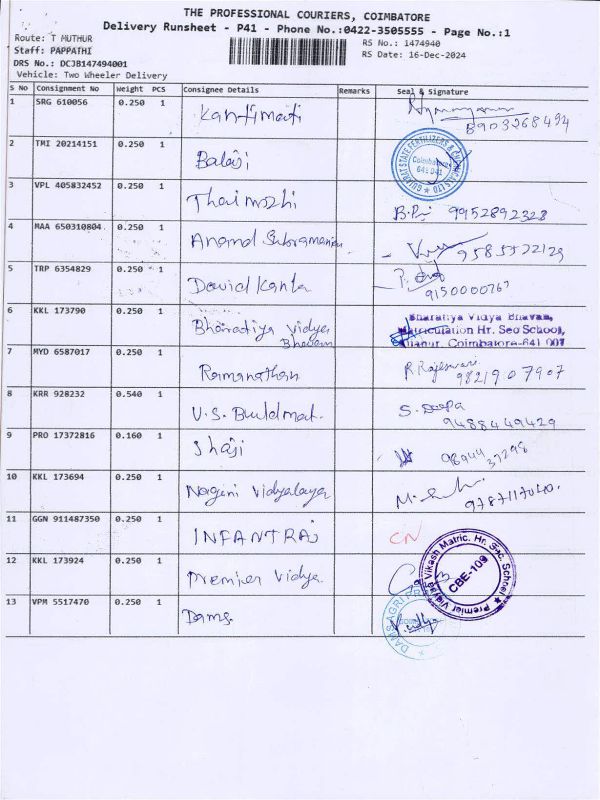 THE PROFESSIONAL COURIERS, COIMBATORE
Delivery Runsheet - P41 - Phone No.:0422-3505555 - Page No.:1
Route: T MUTHUR
RS No.: 1474940
Staff: PAPPATHI
RS Date: 16-Dec-2024
DRS No.: DCJB147494001
Vehicle: Two Wheeler Delivery
S No Consignment No Weight PCS Consignee Details Remarks Seal & Signature
1 SRG 610056 0.250 1 Kanthimati
8903268494
2 TMI 20214151 0.250 1 Balaji
GUJARAT STATE FERTILIZERS & CHEMICALS LTD
Coimbatore
641 041
3 VPL 405832452 0.250 1 Thaimozhi B.Pri 9952892328
4 MAA 650310804 0.250 1 Anand Subramanian
9585522129
5 TRP 6354829 0.250 1 David Kanta
9150000767
6 KKL 173790 0.250 1 Bharatiya Vidya Bhavan
Bharatiya Vidya Bhavan,
Matriculation Hr. Sec School,
Coimbatore-641 007
7 MYD 6587017 0.250 1 Ramanathan R. Rajeswari
9821907907
8 KRR 928232 0.540 1 V.S. Buildmat. S. Deepa
9488449429
9 PRO 17372816 0.160 1 Shaji
98944 37298
10 KKL 173694 0.250 1 Nagini Vidyalaya
9787117040.
11 GGN 911487350 0.250 1 INFANT RAJ CN
12 KKL 173924 0.250 1 Premier Vidya.
Premier Vidya Vikash Matric. Hr. Sec. School
CBE-109
13 VPM 5517470 0.250 1 Dams.
DAMS AGRI